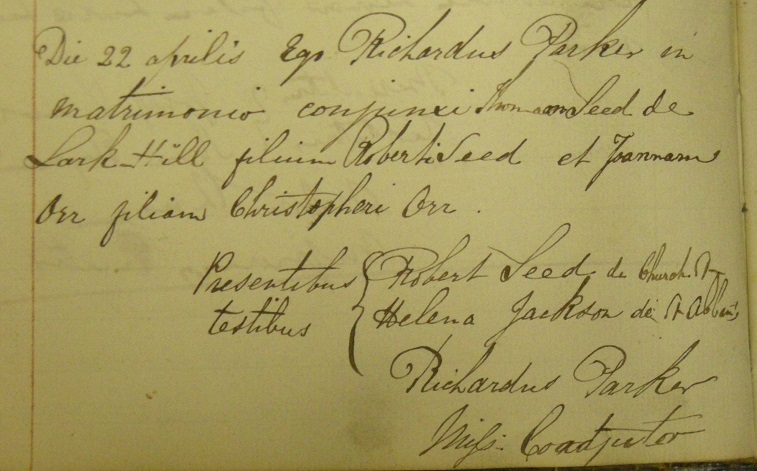 Die 22 aprilis Ego Richardus Parker in
matrimonio conjunxi Thomam Seed de
Lark Hill filium Roberti Seed et Joannam
Orr filiam Christopheri Orr.
Presentibus { Robert Seed de Church St
testibus { Helena Jackson de St Albans
Richardus Parker
Miss. Coadjutor